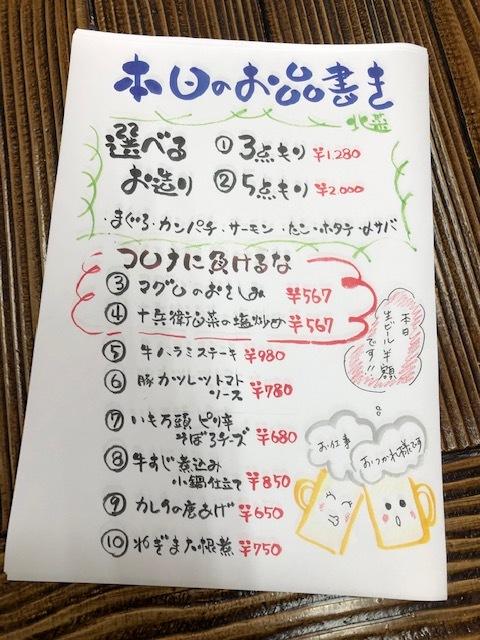 本日のお品書き
北菜
選べる ① 3点もり ¥1.280
お造り ② 5点もり ¥2000
・まぐろ・カンパチ・サーモン・たこ・ホタテ・〆サバ
コロナに負けるな
③ マグロのおさしみ ¥567
④ 十兵衛野菜の塩炒め ¥567
⑤ 牛ハラミステーキ ¥980
⑥ 豚カツレツトマト
ソース ¥780
⑦ いも万頭 ピリ辛
そぼろチーズ ¥680
⑧ 牛すじ煮込み
小鍋仕立て ¥850
⑨ カレイの唐あげ ¥650
⑩ ねぎま大根煮 ¥750
本日
生ビール半額
です!!
お仕事
おつかれ様です